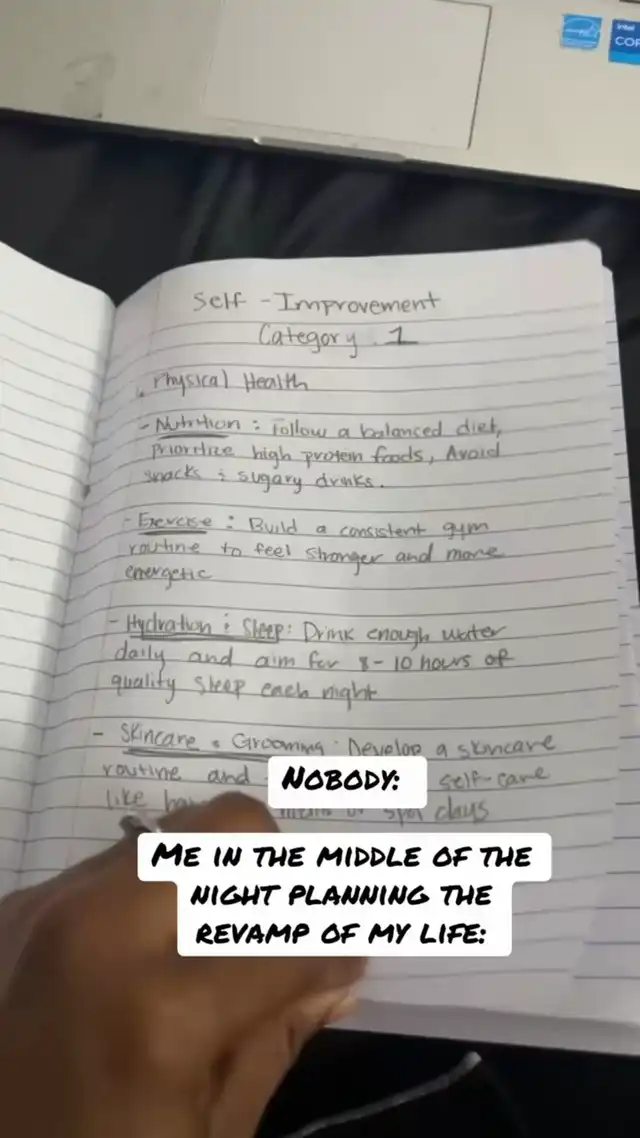 intel
COR
Self - Improvement
Category 1
Physical Health
- Nutrition : Follow a balanced diet,
prioritize high protein foods, Avoid
snacks & sugary drinks.
- Exercise : Build a consistent gym
routine to feel stronger and more
energetic
- Hydration & Sleep: Drink enough water
daily and aim for 8-10 hours of
quality sleep each night
- Skincare & Grooming: Develop a skincare
routine and self-care
like spa days
NOBODY:
ME IN THE MIDDLE OF THE
NIGHT PLANNING THE
REVAMP OF MY LIFE: